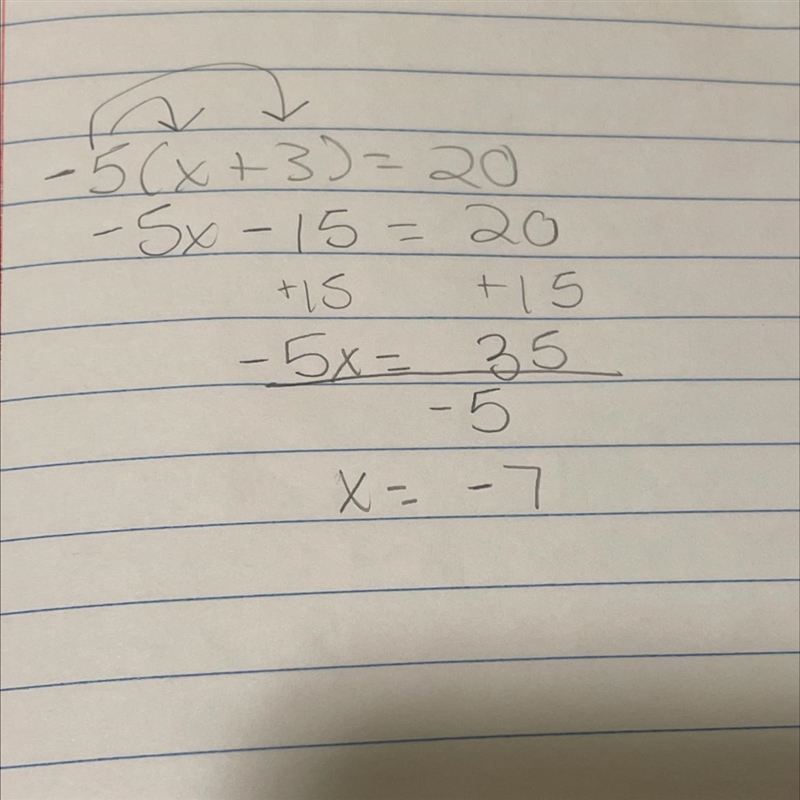 -5(x+3)=20
-5x-15 = 20
+15 +15
-5x= 35
-5
x= -7